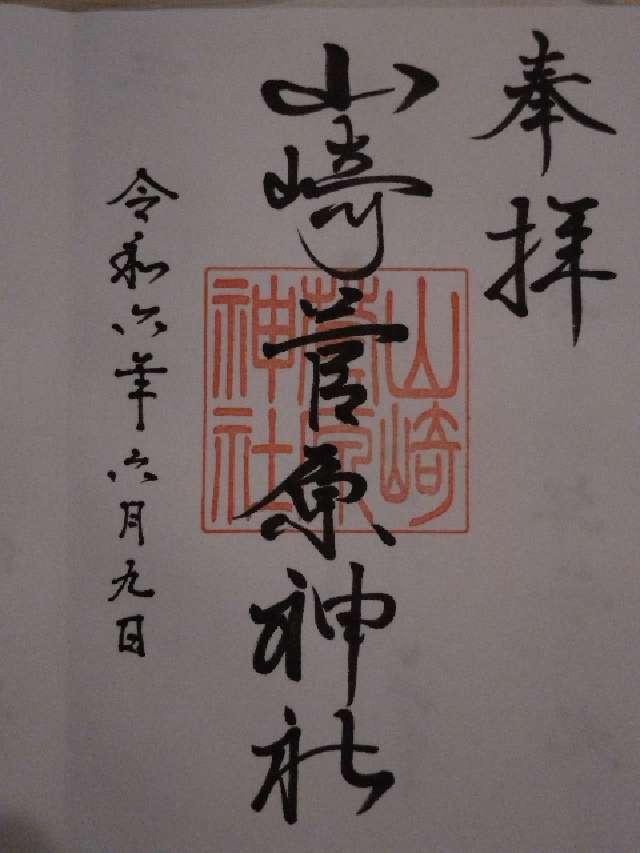 奉拝
山崎菅原神社
山崎
菅原
神社
令和六年六月九日